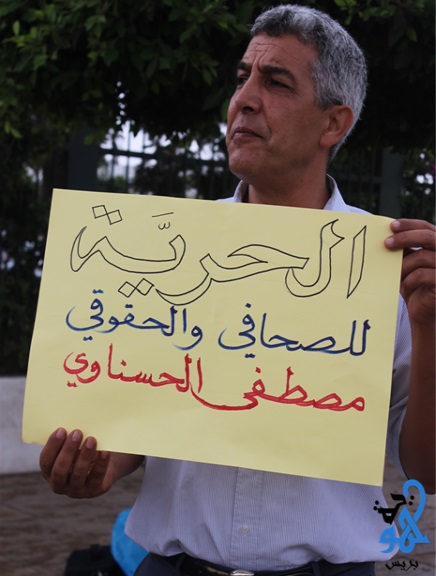 الحريَّة
للصحافي والحقوقي
مصطفى الحسناوي
بريس